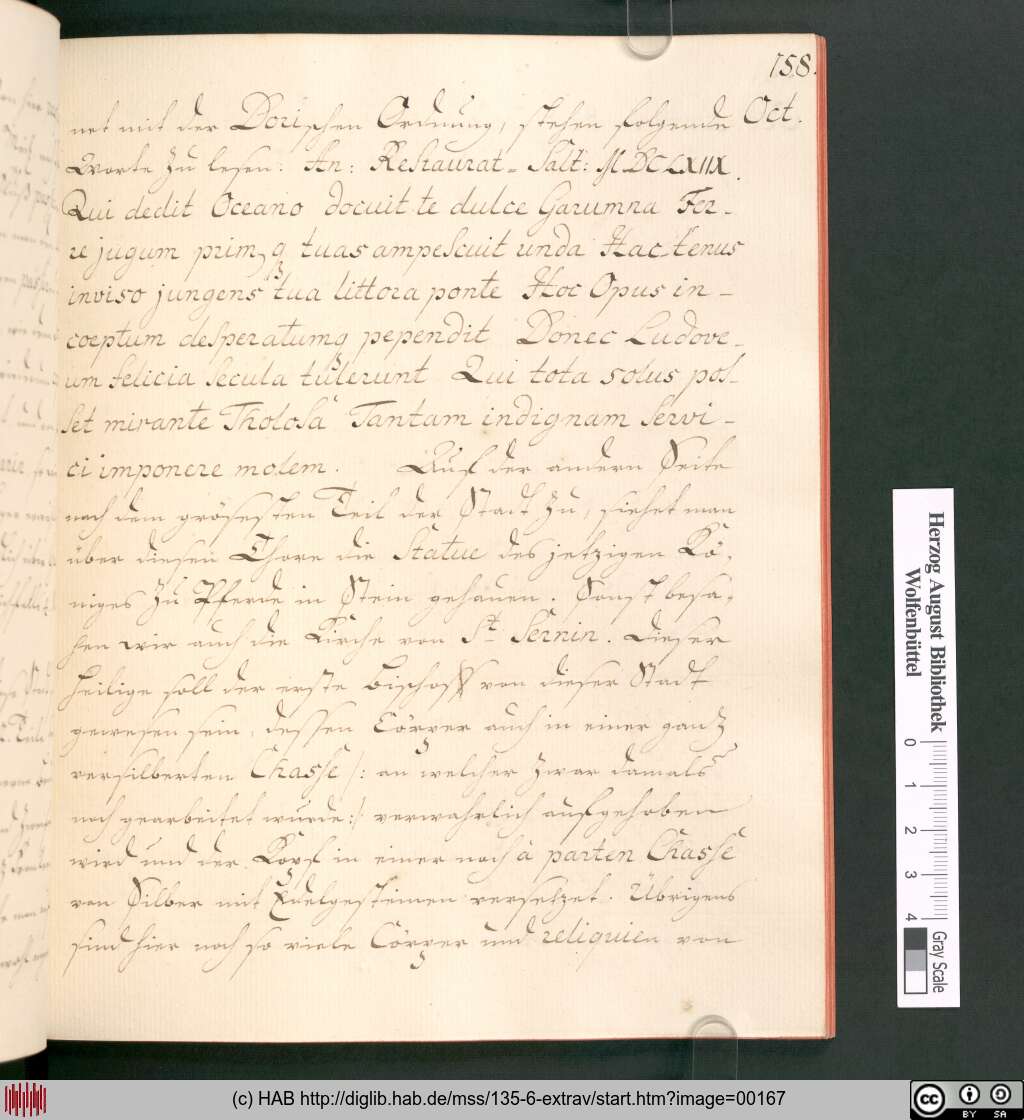 158.
Oct.
net mit der Dorischen Ordnung, stehen folgende
Worte zu lesen: An: Restaurat= Salt: MDCLXIIX.
Qui dedit Oceano docuit te dulce Garumna Fer-
re jugum primq tuas ampescuit unda Hactenus
inviso jungens tua littora ponte Hoc Opus in-
coeptum desperatumq pependit Donec Ludove-
um felicia secula tulerunt Qui tota solus pos-
set mirante Tholosa Tantam indignam servi-
ci imponere molem. Auf der andern Seite
nach dem grösesten Teil der Stadt zu, siehet man
über diesen Thore die Statue des jetzigen Kö-
niges zu Pferde in Stein gehauen. Sonst besa-
hen wir auch die Kirche von St Sernin. Dieser
Heilige soll der erste Bischoff von dieser Stadt
gewesen sein, dessen Cörper auch in einer gantz
versilberten Chasse /: an welcher zwar damals
noch gearbeitet wurde :/ verwahrlich aufgehoben
wird und der Kopf in einer noch à parten Chasse
von Silber mit Edelgesteinen versetzet. Übrigens
sind hier noch so viele Cörper und reliquien von
Herzog August Bibliothek
Wolfenbüttel
0 1 2 3 4
Gray Scale
(c) HAB http://diglib.hab.de/mss/135-6-extrav/start.htm?image=00167
cc BY SA